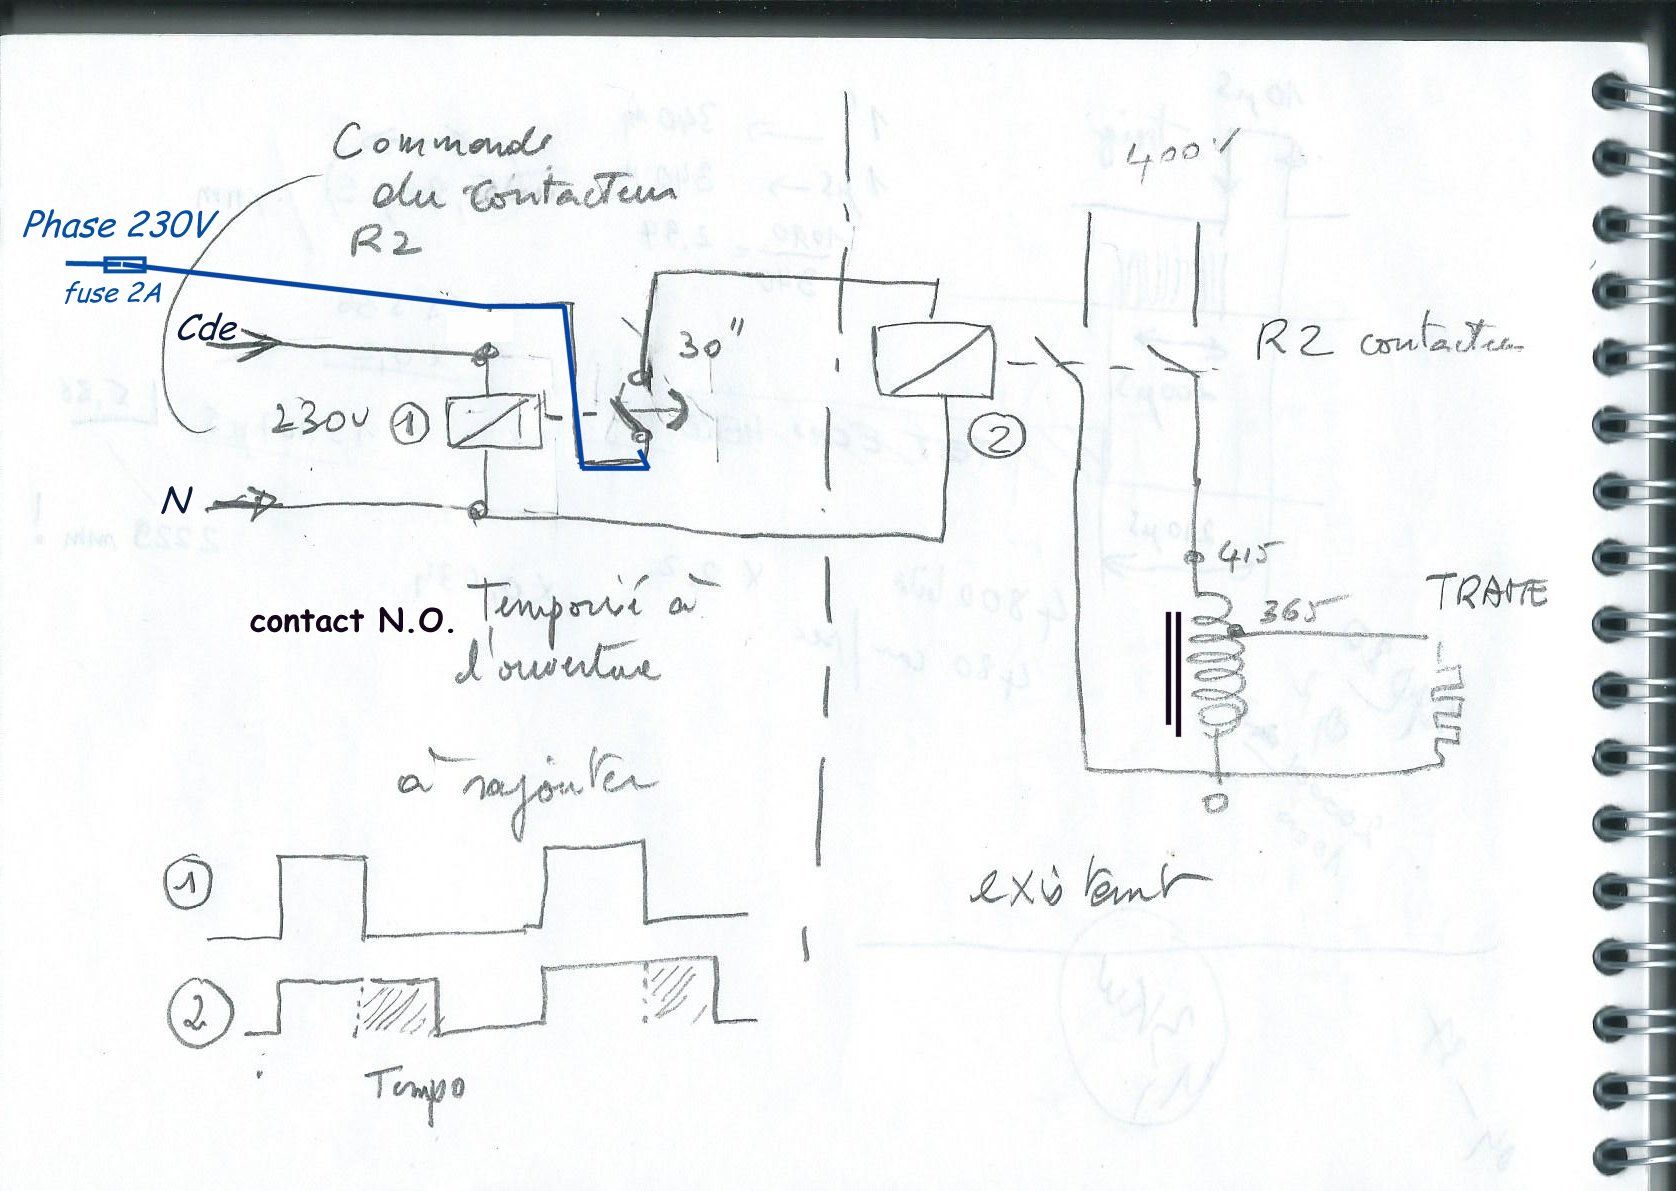 Commande
du contacteur
R2
Phase 230V
fuse 2A
Cde
30"
230V
1
N
contact N.O.
Temporisé à
l'ouverture
à rajouter
1
2
Tempo
400V
R2 contacteur
2
415
365
TRAME
0
existant